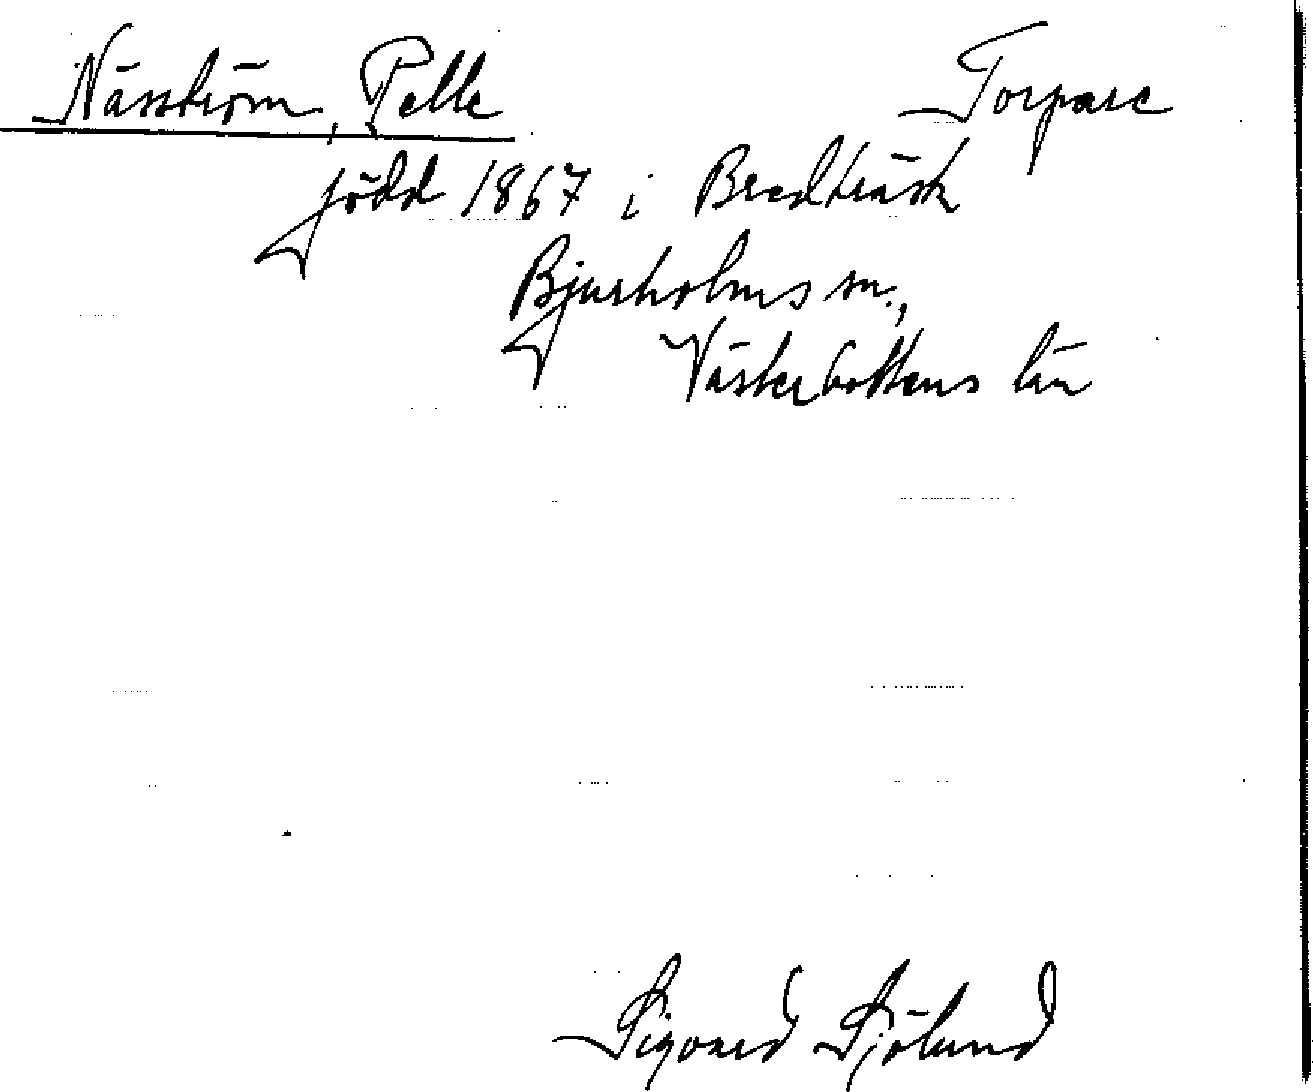 Näsström, Pelle Torpare
född 1867 i Bredträsk
Bjurholms sn.,
Västerbottens län
Sigvard Sjölund